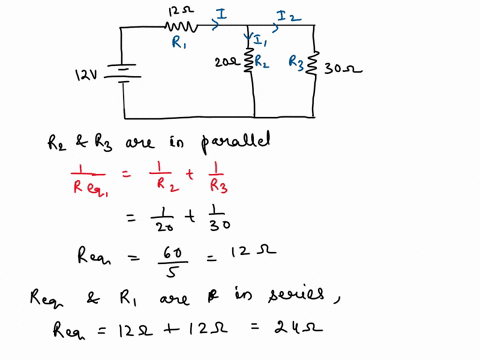 12Ω I I2
R1 I1
12V 20Ω R2 R3 30Ω
R2 & R3 are in parallel
1/Req1 = 1/R2 + 1/R3
= 1/20 + 1/30
Req1 = 60/5 = 12Ω
Req1 & R1 are in series,
Req = 12Ω + 12Ω = 24Ω